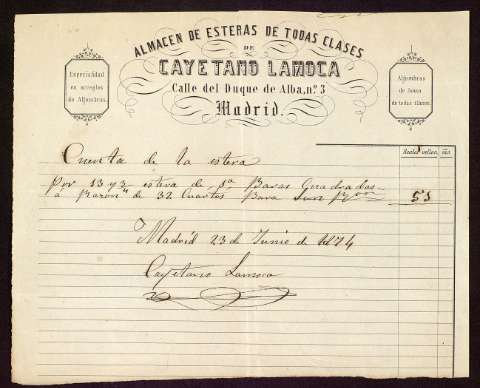 ALMACEN DE ESTERAS DE TODAS CLASES
DE
CAYETANO LAMOCA
Calle del Duque de Alba, nº 3
Madrid.
Especialidad
en arreglos
de Alfombras.
Alfombras
de
de todas clases.
Reales vellon. cts
Cuenta de la estera
Por 13 y 3 estera de 1ª Baras Cuadradas
á Razon de 32 Cuartos Bara Son Rˢ 53
Madrid 23 de Junio de 1874
Cayetano Lamoca